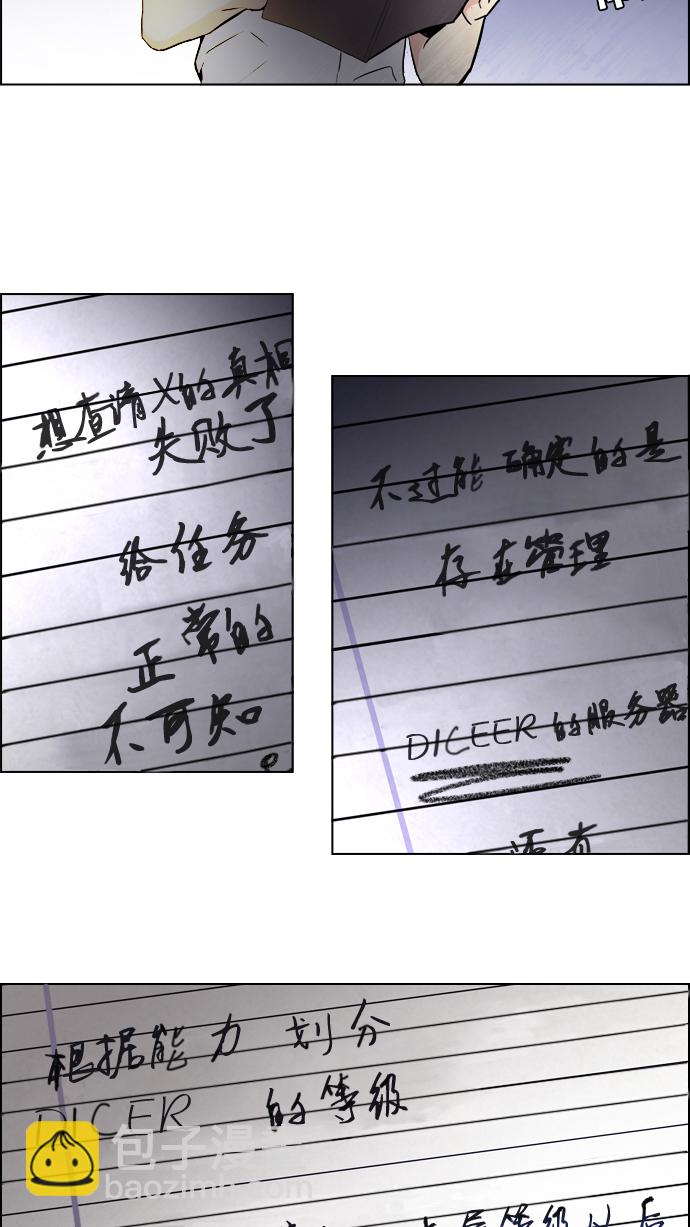 想查清X的真相
失败了
给任务
正常的
不可知。
不过能确定的是
存在管理
DICEER的服务器
还有
根据能力 划分
DICER 的等级
包子漫画
baozimh.com
等级从后